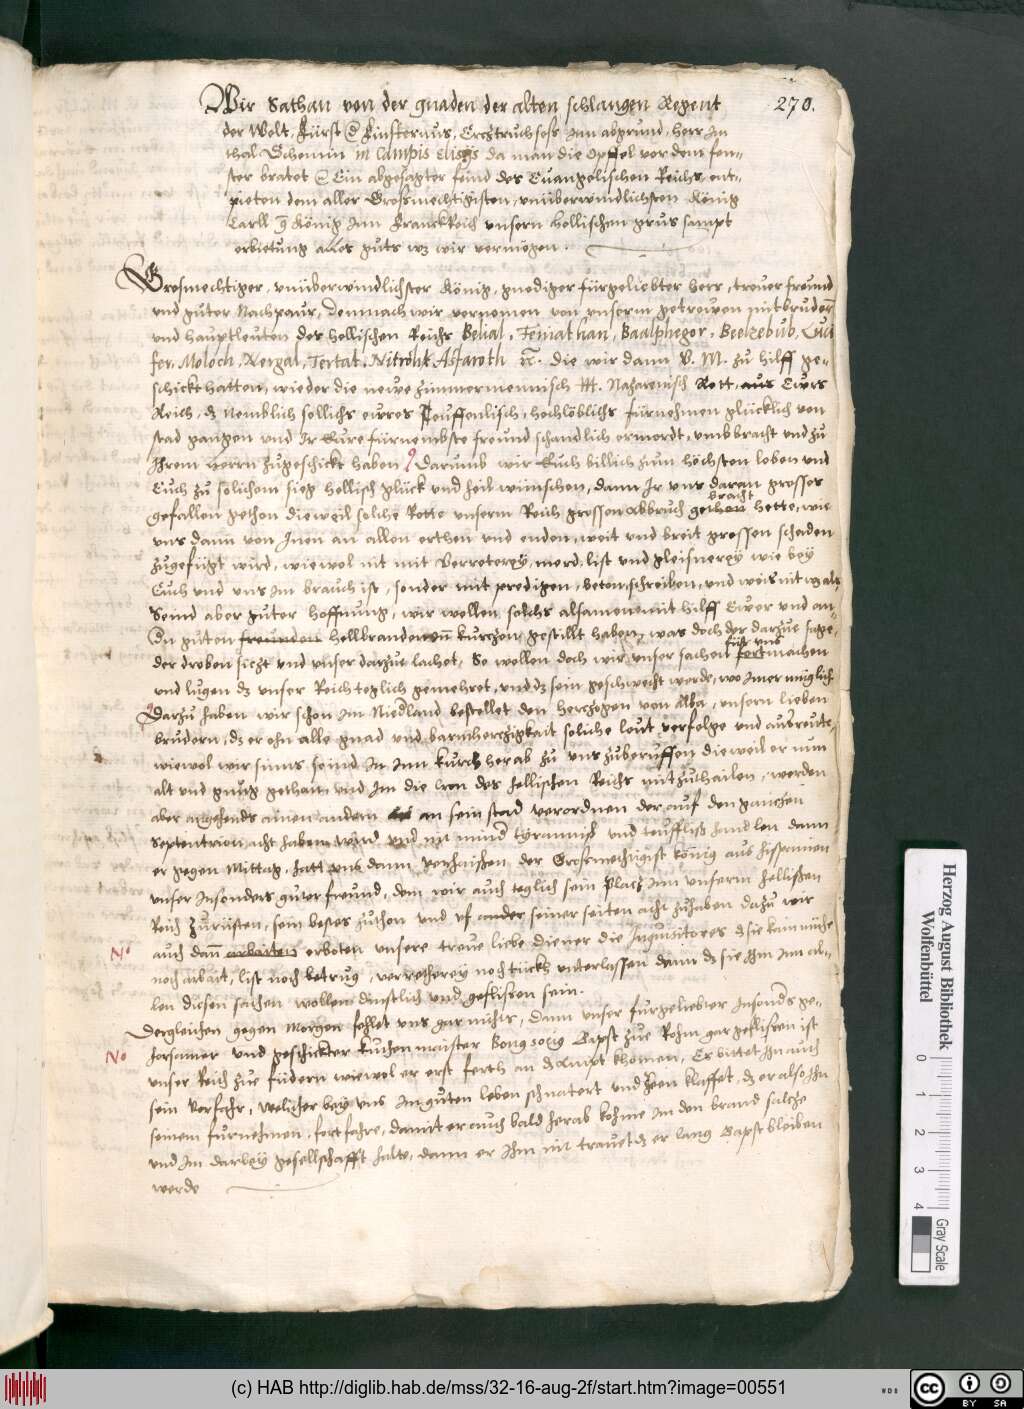 270.
Wir Sathan von der gnaden der alten schlangen Regent
der Welt, Fürst d Finsternus, Ercztruchsess Inn abgrund, herr Im
thal Gehennin in Campis Elisys da man die Opffel vor dem fen-
ster bratet Ein abgesagter feind des Euangelischen Reichs, ent-
pieten dem aller Grosmechtigisten, unüberwindlichsten König
Carll König Inn Franckreich unsern hellischen grus sampt
erbietung alles guts wz wir vermögen.
Grosmechtiger, unüberwindlichster König, gnediger fürgeliebter herr, treuer freund
und guter Nachpaur, Demnach wir vernomen von unserm getrewen mitbrudern
und hauptleuten des hellischen Reichs Belial, Feniathan, Baalphegor, Beelzebub, Luci
fer, Moloch, Nergal, Tertat, Nitroht, Astaroth etc. die wir dann E. M. zu hilff ge-
schickt hatten, wieder die newe zimmermennisch Nazarenisch Rott, aus Ewrs
Reich, dz Nemblich sollichs eurres Teuffenlisch, hochlöblichs fürnehmen glücklich von
stad gangen und Ir Eure fürnembste freund schandlich ermordt, umbbracht und zu
Ihrem herrn zugeschickt haben, Darumb wir Euch billich zum höchsten loben und
Euch zu solichem sieg hellisch glück und heil wünschen, dann Ir uns daran grosses
bracht
gefallen gethon dieweil solche Rotte unserm Reich grossen abbruch gethon hette, wie
uns dann von Inen an allen orthen und enden, weit und breit grossen schaden
zugefügt wird, wiewol nit mit Verreterey, mord, list und gleisnerey wie bey
Euch und uns im brauch ist, sonder mit predigen, beten, schreiben, und weis nit wz als
Seind aber guter hoffnung, wir wollen solchs alsamen mit hilff Ewer und an-
dn guten freunden hellbranden kurczen gestillt haben, was doch der darzue sage
für uns
der droben siczt und unser darzue lachet, So wollen doch wir unser sachen fort machen
und lugen dz unser Reich teglich gemehret, und dz sein geschwecht werde, wo imer müglich
Darzu haben wir schon im Niedland bestellet den herczogen von Alba, unsern lieben
brudern, dz er ohn alle gnad und barmherczigkait soliche leut verfolge und ausreute,
wiewol wir sinns seind In Inn kurcz herab zu uns zuberuffen dieweil er nun
alt und gnug gethan und Im die Cron des hellischen Reichs mitzuthailen, werden
aber angehends ainen andern an sein stad verordnen der auf den ganczen
Septentrion acht haben wird und nit mindr tyrannisch und teufflisch handlen dann
er gegen Mittag, hatt uns dann verhaissen der Grosmechtigist König aus Hispannien
unser Insonders guter freund, dem wir auch teglich sein Placz Inn unserm hellischen
Reich zurüsten, sein bestes zuthon und uf ander seiner seiten acht zuhaben dazu wir
No
auch dann arbaiten erboten unsere treue liebe diener die Inquisitores dz sie kain mühe
noch arbait, list noch betrug, verretherey noch tücks unterlassen dann dz sie Ihm Inn al-
len diesen sachen wollen dinstlich und geflissen sein.
Dergleichen gegen Morgen fehlet uns gar nichts, dann unser fürgeliebter Insonders ge-
No
horsamer und geschickter kuchenmaister Bapst zue Rohm gar geflissen ist
unser Reich zue fürdern wiewol er erst ferth an dz Ampt khomen, Er bittet Ihn auch
sein Vorfahr, welicher bey uns Im guten leben schnatert und zeen klaffet, dz er also Ihn
seinem fürnehmen, fortfahre, damit er auch bald herab kohme In den brand solche
und Im darbey gesellschafft halte, dann er Ihm nit trauet dz er lang Bapst bleiben
werde
Herzog August Bibliothek
Wolfenbüttel
0 1 2 3 4
Gray Scale
(c) HAB http://diglib.hab.de/mss/32-16-aug-2f/start.htm?image=00551
WDB
cc BY SA